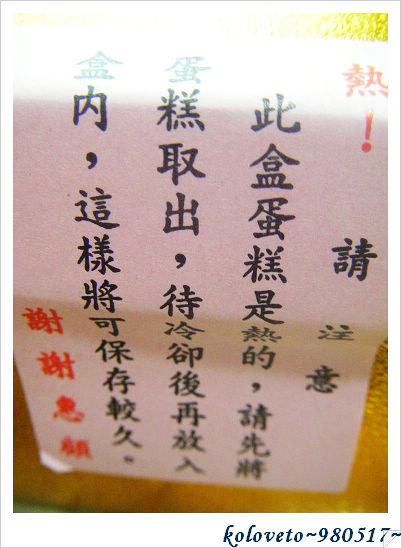 熱！請注意
此盒蛋糕是熱的，請先將
蛋糕取出，待冷卻後再放入
盒內，這樣將可保存較久。
謝謝惠顧
koloveto~980517~